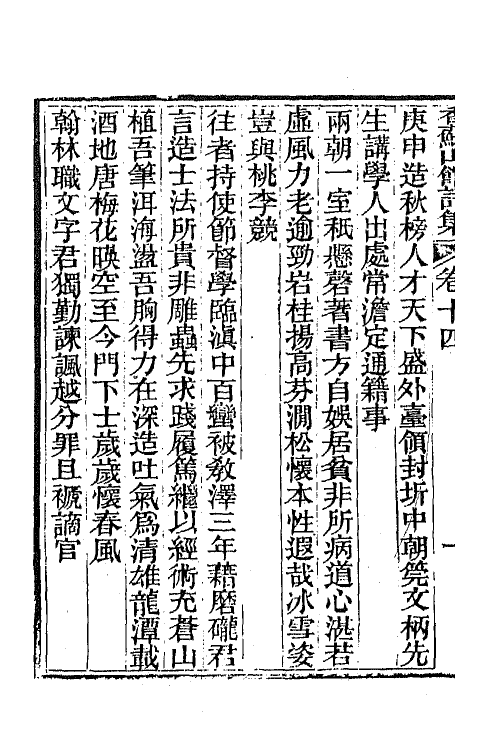 香蘇山館詩集 卷十四 一
庚申造秋榜人才天下盛外臺領封圻中朝筦文柄先
生講學人出處常澹定通籍事
兩朝一室秖懸磬著書方自娛居貧非所病道心湛若
虛風力老逾勁岩桂揚高芬澗松懷本性遐哉冰雪姿
豈與桃李競
往者持使節督學臨滇中百蠻被敎澤三年藉磨礲君
言造士法所貴非雕蟲先求踐履篤繼以經術充蒼山
植吾筆洱海盪吾胸得力在深造吐氣爲清雄龍潭載
酒地唐梅花暎空至今門下士歲歲懷春風
翰林職文字君獨勤諫諷越分罪且褫謫官